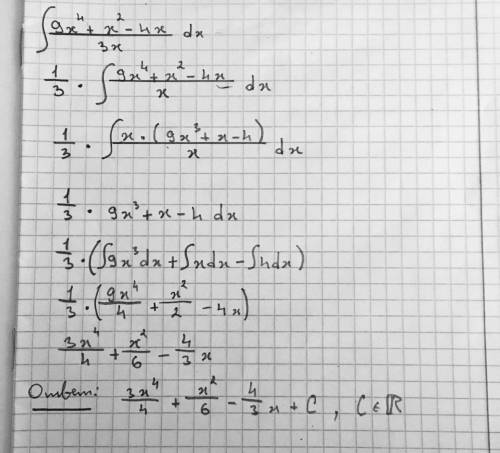 ∫ (9x⁴ + x² − 4x)/(3x) dx
1/3 · ∫ (9x⁴ + x² − 4x)/x dx
1/3 · ∫ (x · (9x³ + x − 4))/x dx
1/3 · 9x³ + x − 4 dx
1/3 · (∫9x³dx + ∫xdx − ∫4dx)
1/3 · (9x⁴/4 + x²/2 − 4x)
3x⁴/4 + x²/6 − 4/3 x
Ответ: 3x⁴/4 + x²/6 − 4/3 x + C , C ∈ ℝ